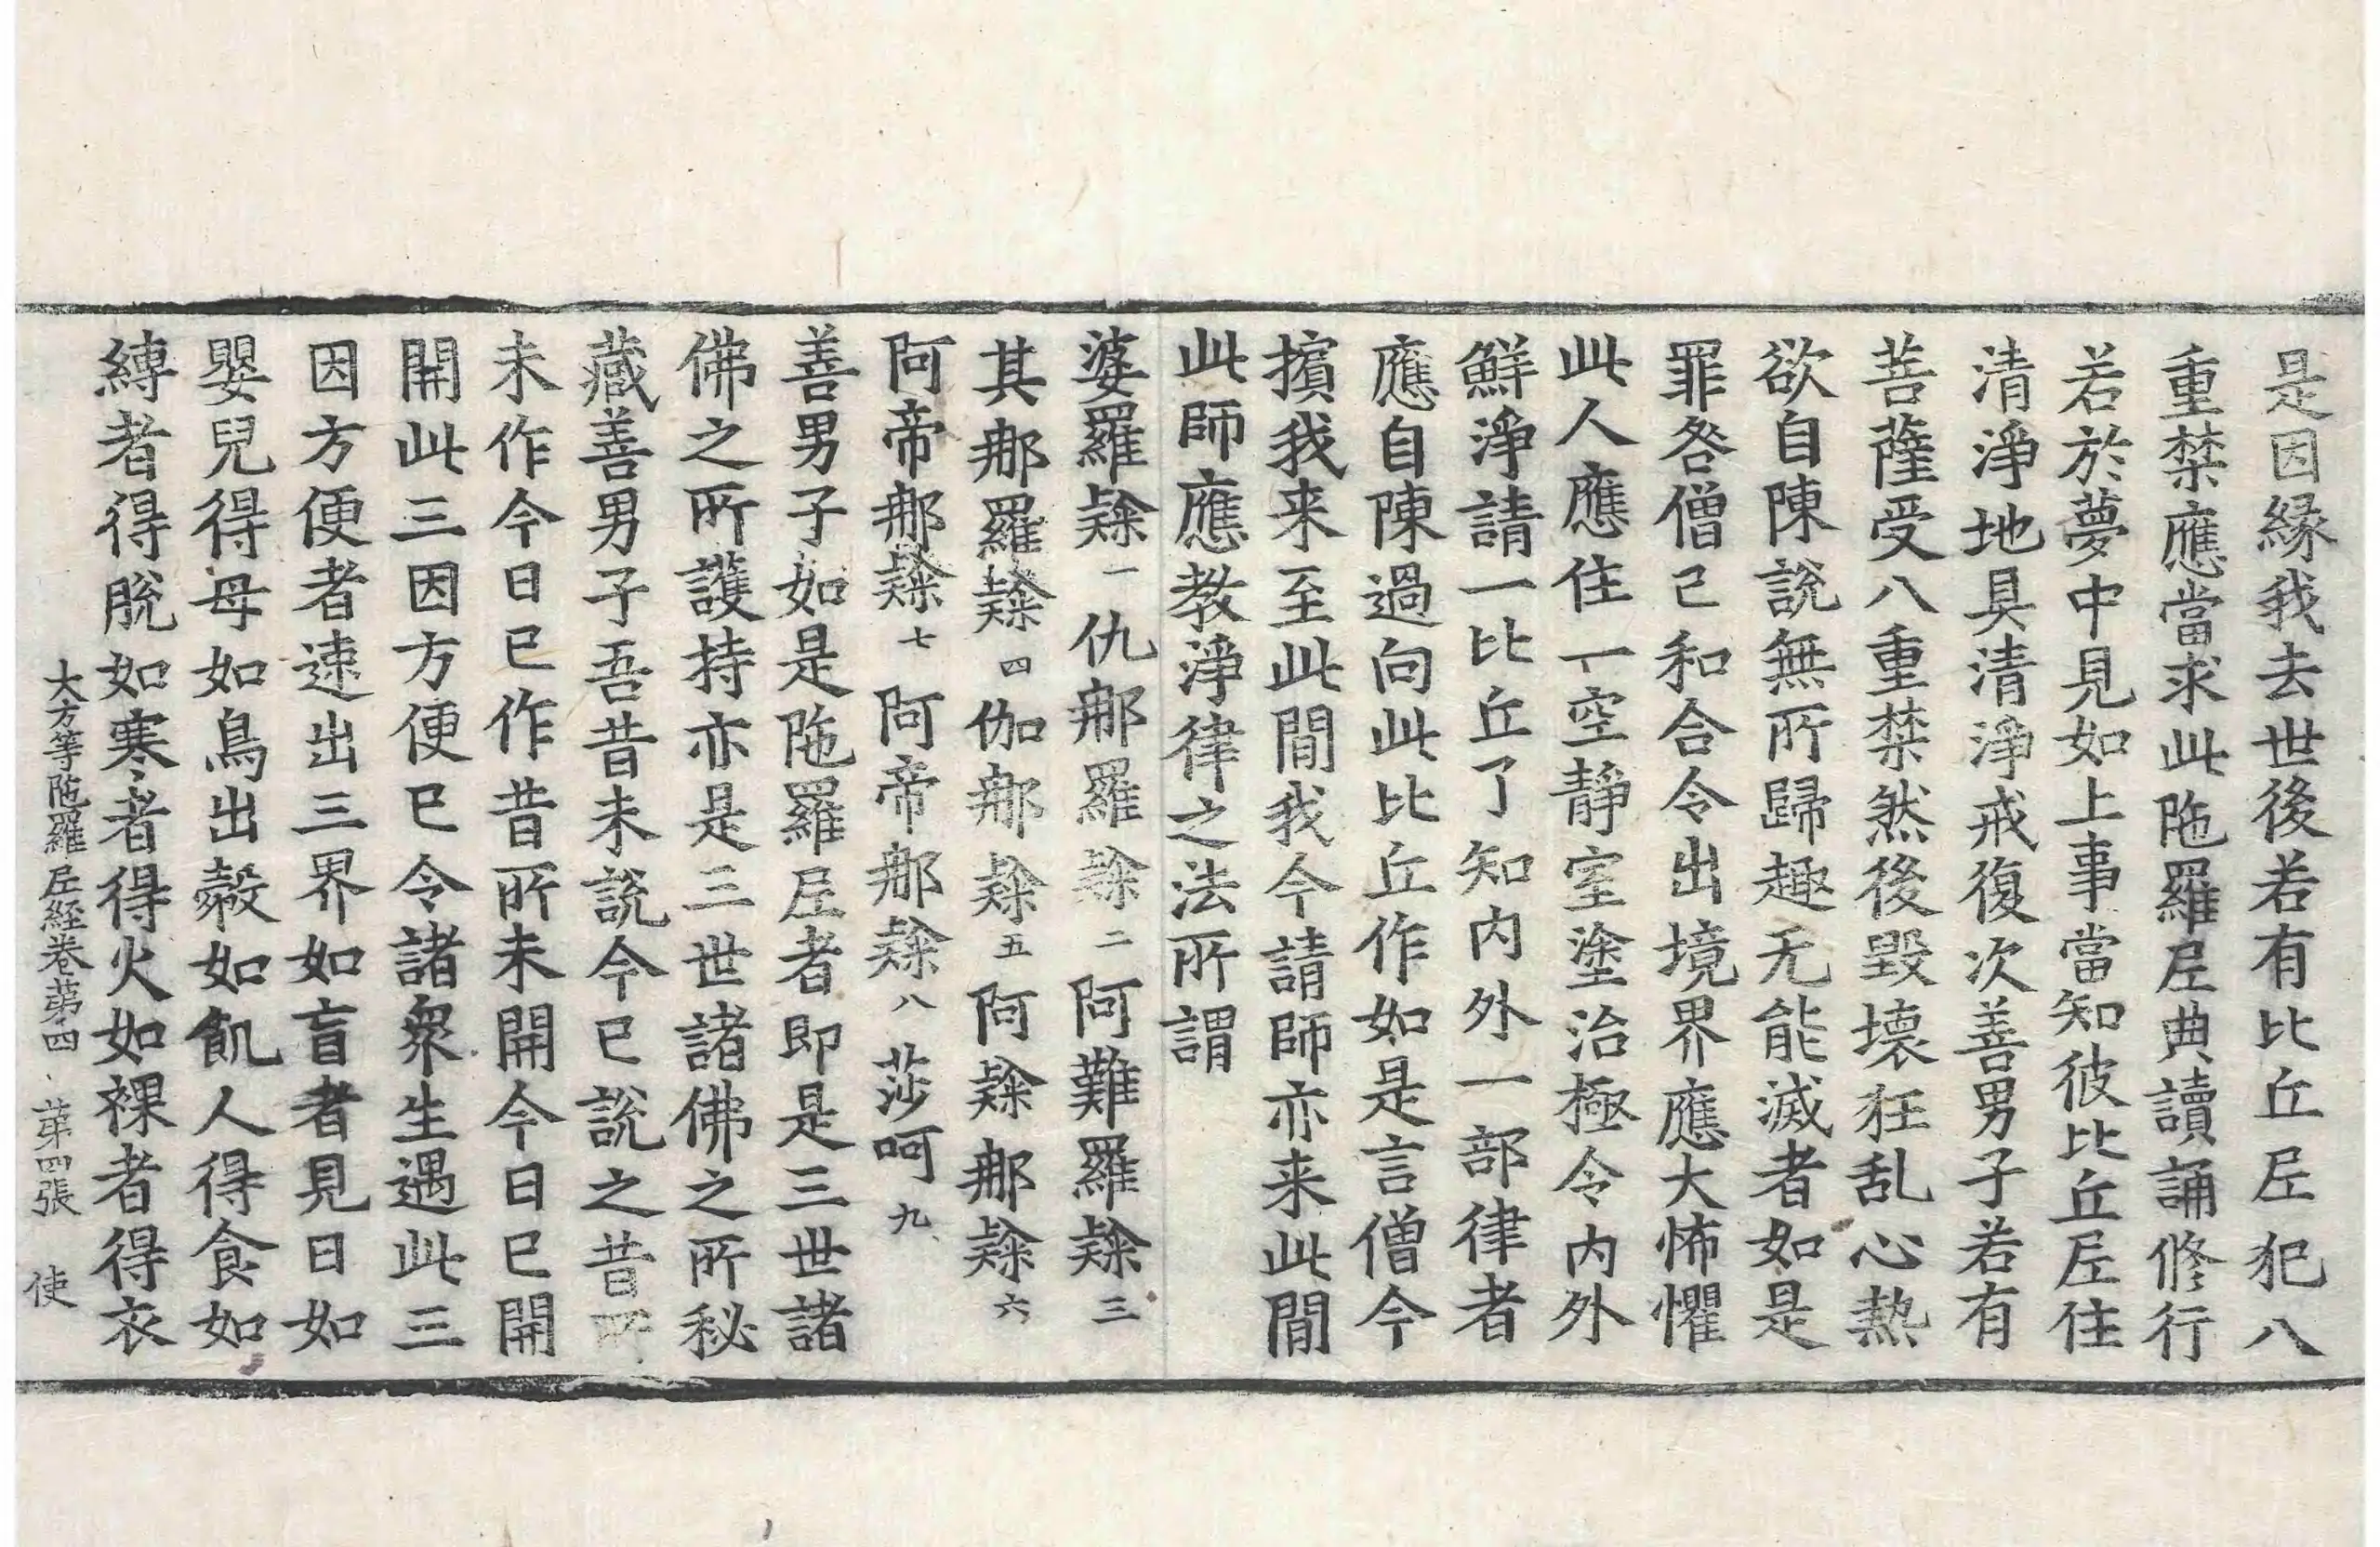 是因縁我去世後若有比丘𡰱犯八
重禁應當求此陁羅𡰱典讀誦修行
若於夢中見如上事當知彼比丘𡰱住
清淨地具清淨戒復次善男子若有
菩薩受八重禁然後毀壞狂乱心熱
欲自陳說無所歸趣无能滅者如是
罪咎僧已和合令出境界應大怖懼
此人應住一空靜室塗治極令内外
鮮淨請一比丘了知内外一部律者
應自陳過向此比丘作如是言僧今
擯我来至此間我今請師亦来此間
此師應教淨律之法所謂
婆羅隸一仇那羅隸二阿難羅隸三
其那羅隸四伽那隸五阿隸那隸六
阿帝那隸七阿帝那隸八莎呵九
善男子如是陁羅𡰱者即是三世諸
佛之所護持亦是三世諸佛之所秘
藏善男子吾昔未說今已說之昔所
未作今日已作昔所未開今日已開
開此三因方便已令諸衆生遇此三
因方便者速出三界如盲者見日如
嬰兒得母如鳥出㲉如飢人得食如
縛者得脫如寒者得火如裸者得衣
大方等陁羅𡰱経卷苐四 苐四張 使